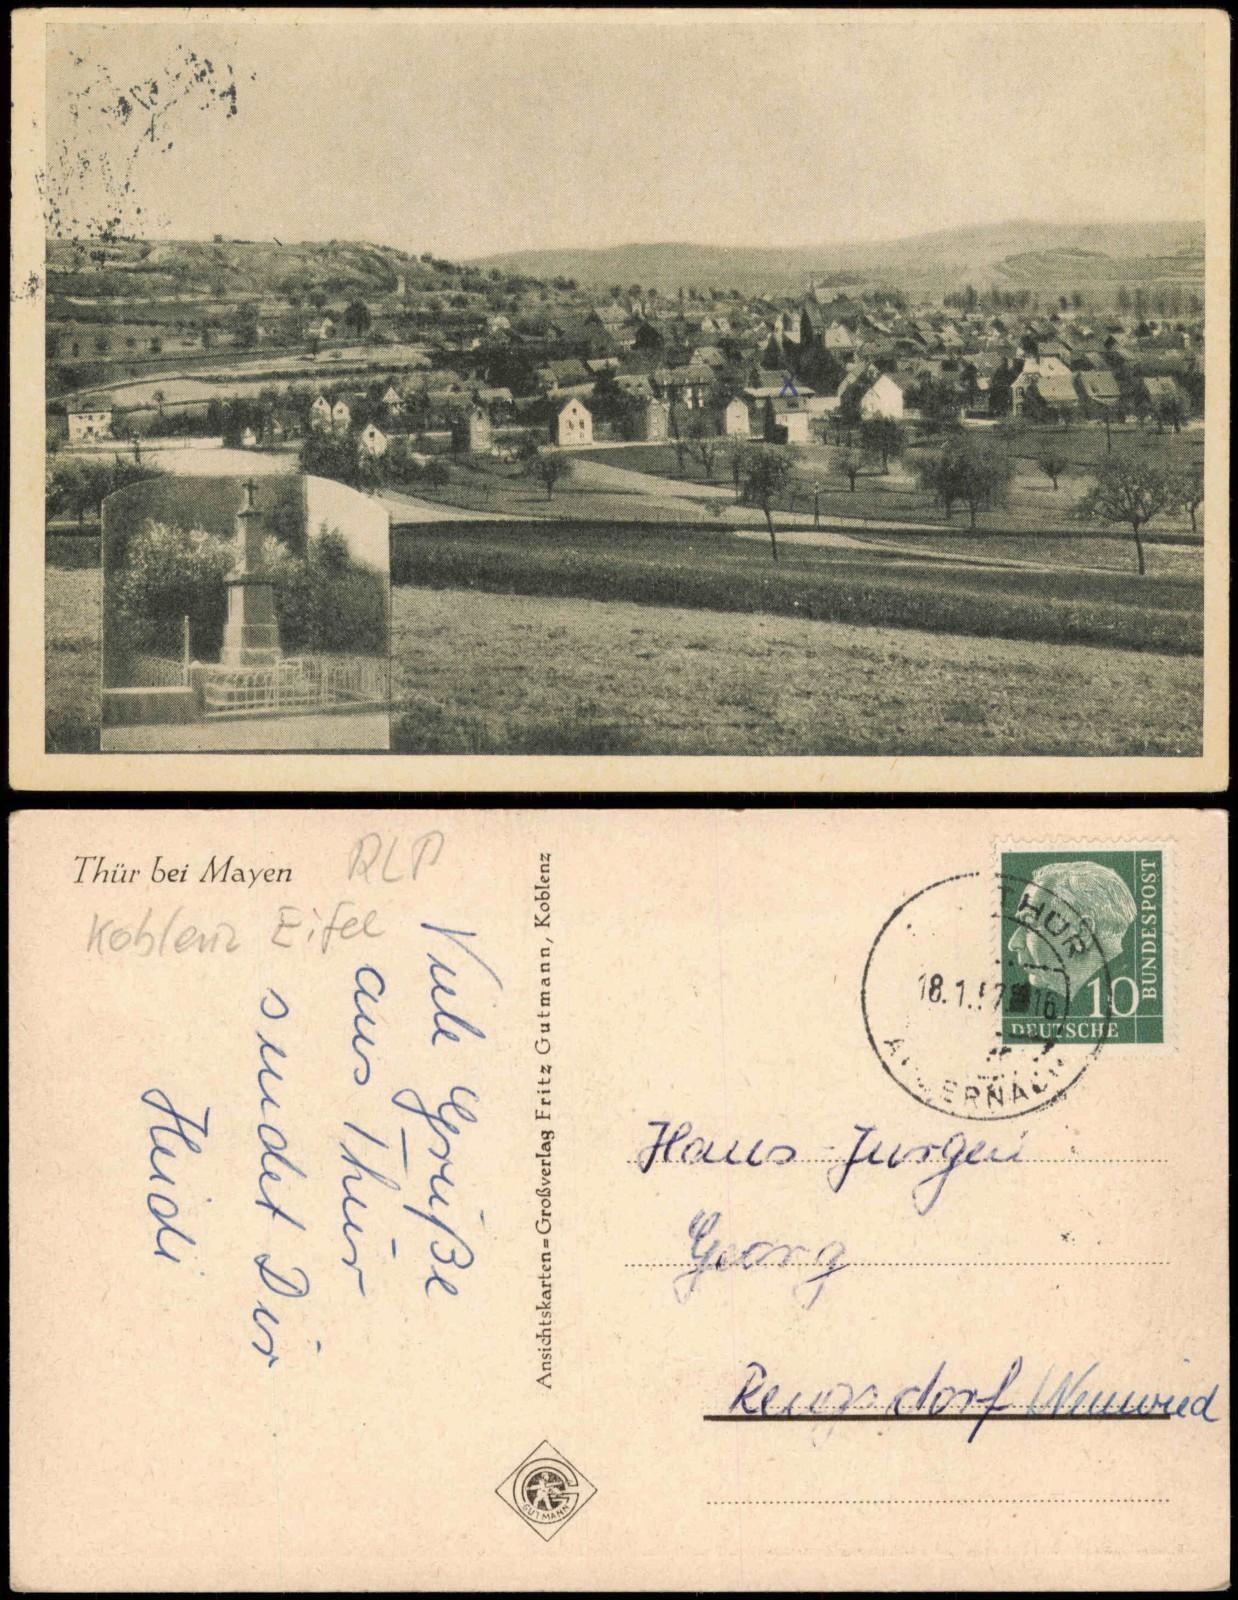 Thür bei Mayen
RLP
Koblenz Eifel
Viele Grüße
aus Thür
sendet Dir
Heidi
Ansichtskarten=Großverlag Fritz Gutmann, Koblenz
GUTMANN
THÜR
18.1.57 16
DEUTSCHE
BUNDESPOST
10
Hans-Jürgen
Georg
Rengsdorf /Neuwied
X